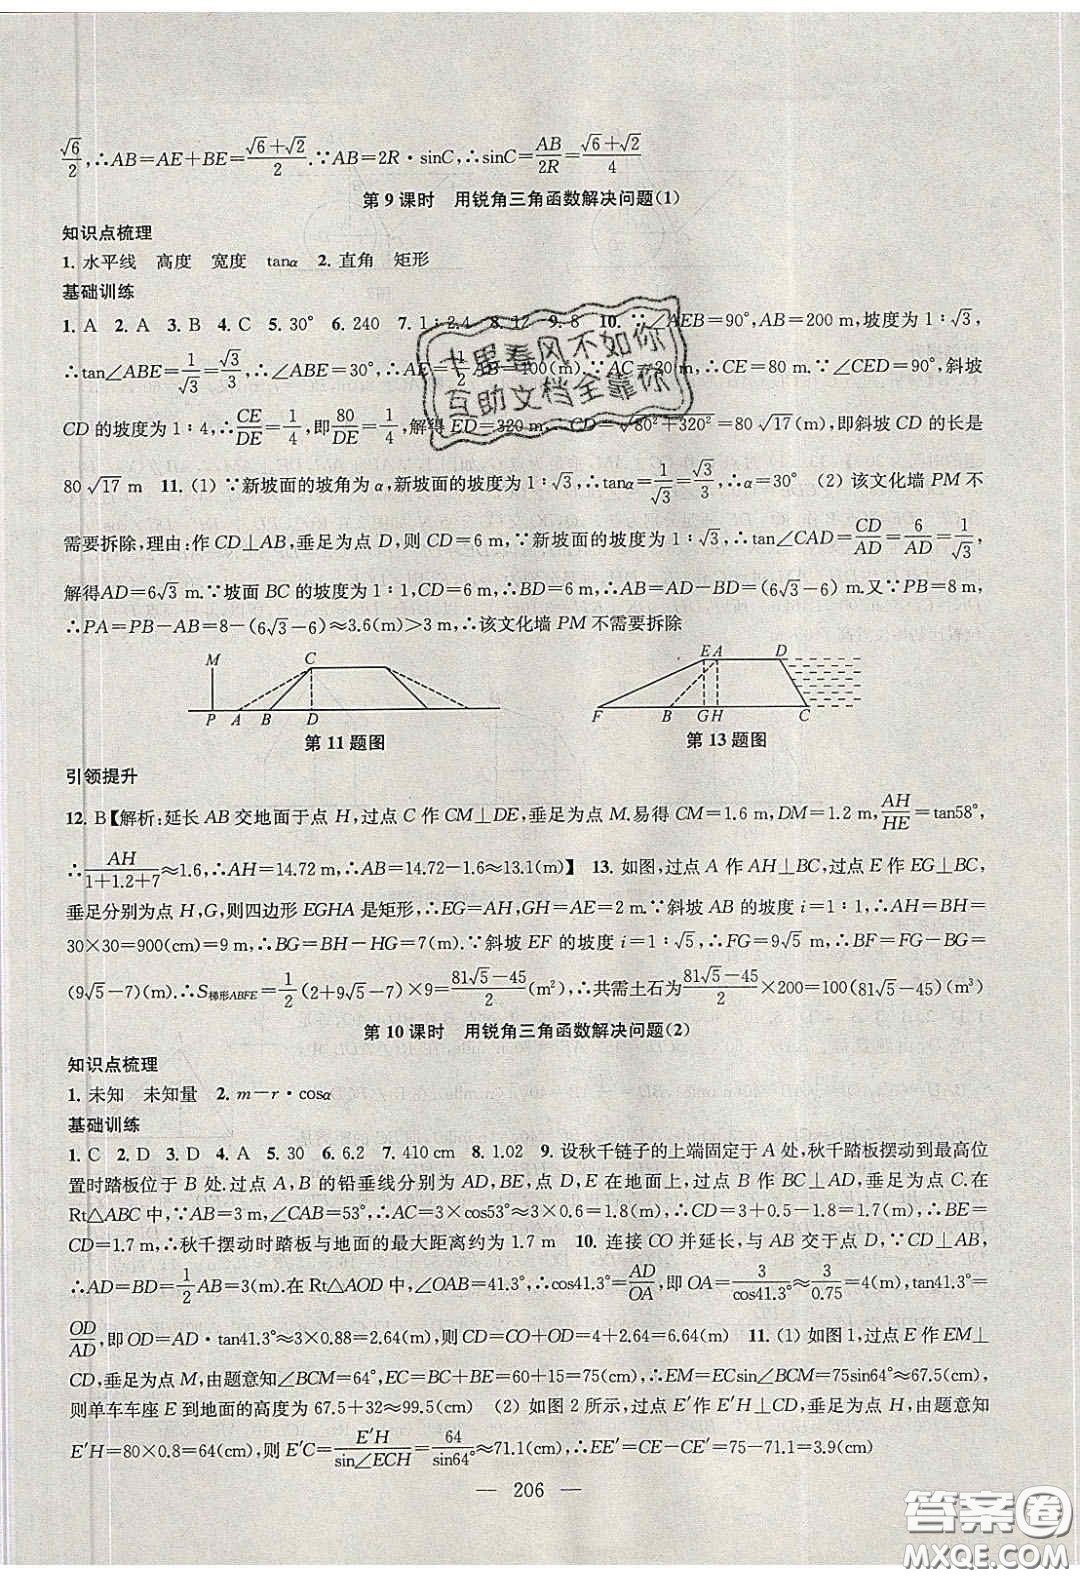 √6/2,∴AB=AE+BE=(√6+√2)/2.∵AB=2R·sinC,∴sinC=AB/2R=(√6+√2)/4
第9课时 用锐角三角函数解决问题(1)
知识点梳理
1. 水平线 高度 宽度 tanα 2. 直角 矩形
基础训练
1. A 2. A 3. B 4. C 5. 30° 6. 240 7. 1∶2.4 8. 12 9. 8 10. ∵∠AEB=90°,AB=200 m,坡度为1∶√3,
∴tan∠ABE=1/√3=√3/3,∴∠ABE=30°,∴AE=1/2AB=100(m).∵AC=20 m,∴CE=80 m.∵∠CED=90°,斜坡
CD的坡度为1∶4,∴CE/DE=1/4,即80/DE=1/4,解得ED=320 m,∴CD=√(80²+320²)=80√17(m),即斜坡CD的长是
80√17 m 11. (1) ∵新坡面的坡角为α,新坡面的坡度为1∶√3,∴tanα=1/√3=√3/3,∴α=30° (2) 该文化墙PM不
需要拆除,理由:作CD⊥AB,垂足为点D,则CD=6 m,∵新坡面的坡度为1∶√3,∴tan∠CAD=CD/AD=6/AD=1/√3,
解得AD=6√3 m.∵坡面BC的坡度为1∶1,CD=6 m,∴BD=6 m,∴AB=AD-BD=(6√3-6)m.又∵PB=8 m,
∴PA=PB-AB=8-(6√3-6)≈3.6(m)>3 m,∴该文化墙PM不需要拆除
M C
P A B D
第11题图
E A D
F B G H C
第13题图
引领提升
12. B【解析:延长AB交地面于点H,过点C作CM⊥DE,垂足为点M.易得CM=1.6 m,DM=1.2 m,AH/HE=tan58°,
∴AH/(1+1.2+7)≈1.6,∴AH=14.72 m,∴AB=14.72-1.6≈13.1(m)】 13. 如图,过点A作AH⊥BC,过点E作EG⊥BC,
垂足分别为点H,G,则四边形EGHA是矩形,∴EG=AH,GH=AE=2 m.∵斜坡AB的坡度i=1∶1,∴AH=BH=
30×30=900(cm)=9 m,∴BG=BH-HG=7(m).∵斜坡EF的坡度i=1∶√5,∴FG=9√5 m,∴BF=FG-BG=
(9√5-7)(m).∴S梯形ABFE=1/2(2+9√5-7)×9=(81√5-45)/2(m²),∴共需土石为(81√5-45)/2×200=100(81√5-45)(m³)
第10课时 用锐角三角函数解决问题(2)
知识点梳理
1. 未知 未知量 2. m-r·cosα
基础训练
1. C 2. D 3. D 4. A 5. 30 6. 6.2 7. 410 cm 8. 1.02 9. 设秋千链子的上端固定于A处,秋千踏板摆动到最高位
置时踏板位于B处.过点A,B的铅垂线分别为AD,BE,点D,E在地面上,过点B作BC⊥AD,垂足为点C.在
Rt△ABC中,∵AB=3 m,∠CAB=53°,∴AC=3×cos53°≈3×0.6=1.8(m),∴CD=3+0.5-1.8=1.7(m),∴BE=
CD=1.7 m,∴秋千摆动时踏板与地面的最大距离约为1.7 m 10. 连接CO并延长,与AB交于点D,∵CD⊥AB,
∴AD=BD=1/2AB=3(m).在Rt△AOD中,∠OAB=41.3°,∴cos41.3°=AD/OA,即OA=3/cos41.3°≈3/0.75=4(m),tan41.3°=
OD/AD,即OD=AD·tan41.3°≈3×0.88=2.64(m),则CD=CO+OD=4+2.64=6.64(m) 11. (1) 如图1,过点E作EM⊥
CD,垂足为点M,由题意知∠BCM=64°,EC=BC+BE=60+15=75(cm),∴EM=ECsin∠BCM=75sin64°≈67.5(cm),
则单车车座E到地面的高度为67.5+32≈99.5(cm) (2) 如图2所示,过点E′作E′H⊥CD,垂足为点H,由题意知
E′H=80×0.8=64(cm),则E′C=E′H/sin∠ECH=64/sin64°≈71.1(cm),∴EE′=CE-CE′=75-71.1=3.9(cm)
— 206 —
十里春风不如你
互助文档全靠你
答案圈
MXQE.COM